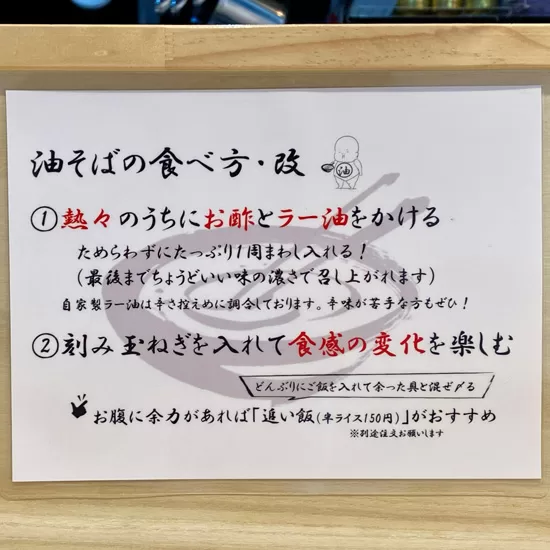 油そばの食べ方・改
油
①熱々のうちにお酢とラー油をかける
ためらわずにたっぷり1周まわし入れる！
（最後までちょうどいい味の濃さで召し上がれます）
自家製ラー油は辛さ控えめに調合しております。辛味が苦手な方もぜひ！
②刻み玉ねぎを入れて食感の変化を楽しむ
どんぶりにご飯を入れて余った具と混ぜ〆る
お腹に余力があれば「追い飯(半ライス150円)」がおすすめ
※別途注文お願いします